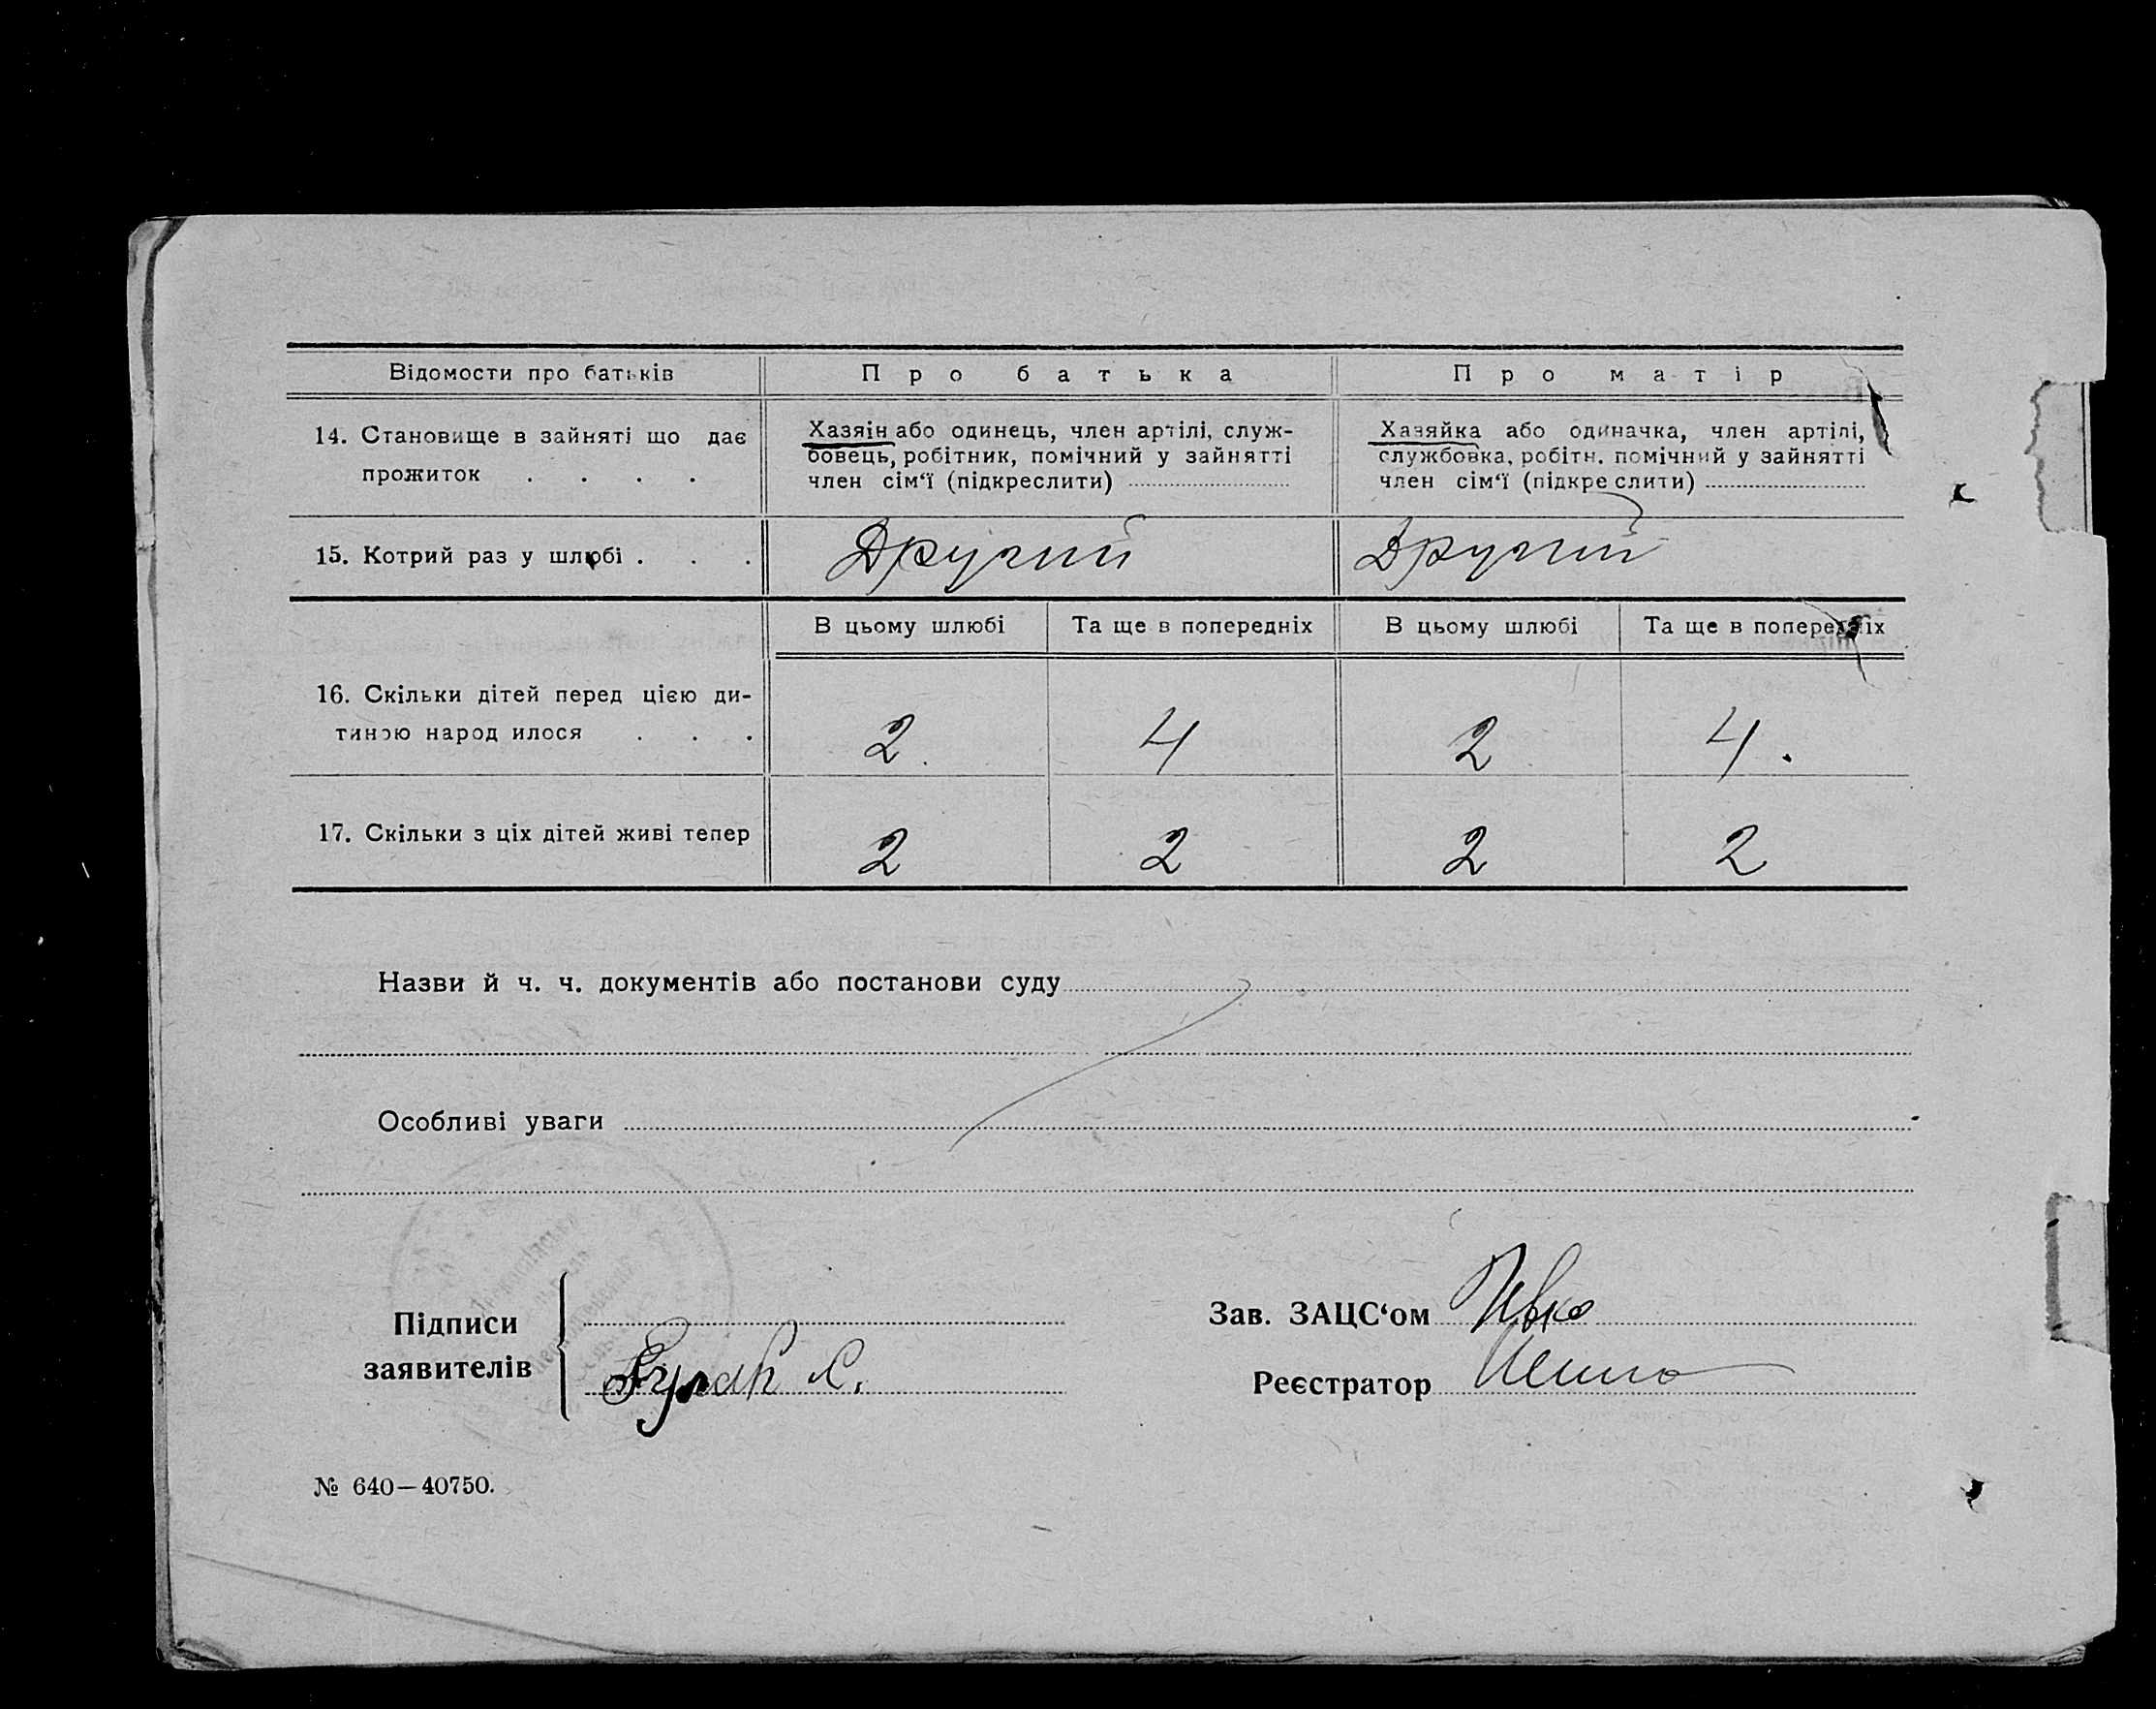 Відомости про батьків
Про батька
Про матір
14. Становище в зайняті що дає
прожиток . . . .
Хазяін або одинець, член артілі, служ-
бовець, робітник, помічний у зайнятті
член сім‘ї (підкреслити)
Хазяйка або одиначка, член артілі,
службовка, робітн. помічний у зайнятті
член сім‘ї (підкре слити)
15. Котрий раз у шлюбі . . .
Другий
Другий
В цьому шлюбі
Та ще в попередніх
В цьому шлюбі
Та ще в попередніх
16. Скільки дітей перед цією ди-
тиною народ илося . . .
2
4
2
4.
17. Скільки з ціх дітей живі тепер
2
2
2
2
Назви й ч. ч. документів або постанови суду
Особливі уваги
Підписи
заявителів
Зав. ЗАЦС‘ом
Реєстратор
№ 640—40750.